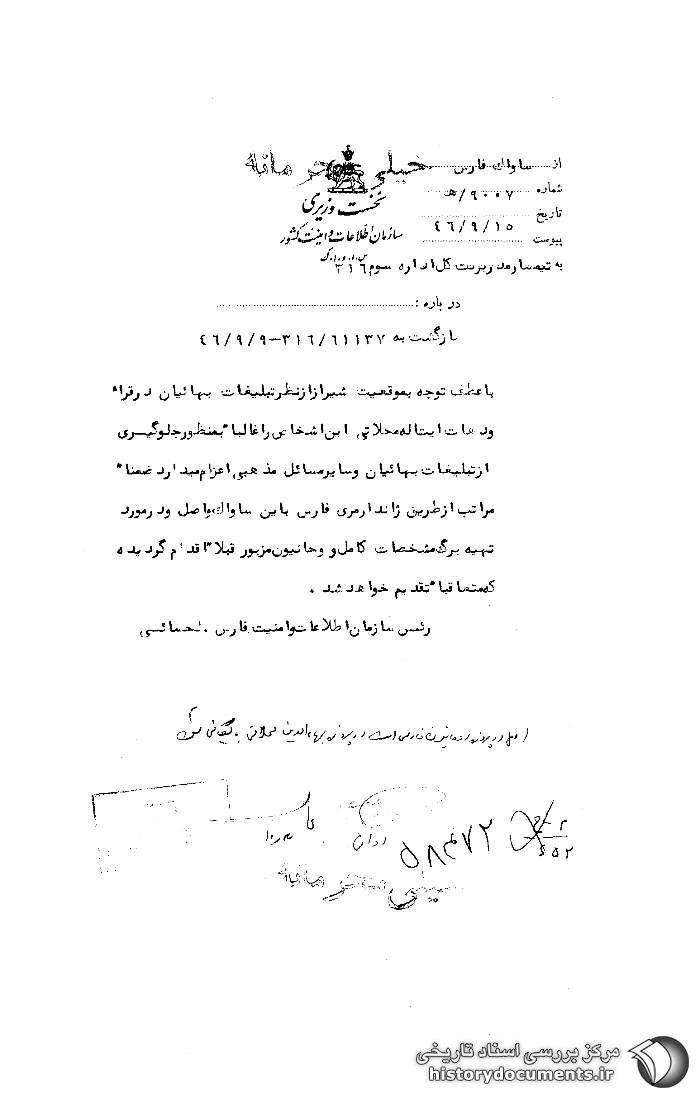 خیلی محرمانه
نخست وزیری
سازمان اطلاعات و امنیت کشور
س.ا.و.ا.ک
از ساواك فارس
شماره ۹۰۰۷/ﻫ
تاریخ ۴۶/۹/۱۵
پیوست
به تیمسار مدیریت کل اداره سوم ۳۱۶
درباره :
بازگشت به ۳۱۶/۶۱۱۳۷-۴۶/۹/۹
باعطف توجه بموقعیت شیراز ازنظر تبلیغات بهائیان درقراء
ودهات ایت اله محلاتی این اشخاص را غالبا" بمنظور جلوگیری
از تبلیغات بهائیان وسایر مسائل مذهبی اعزام میدارد ضمنا"
مراتب از طریق ژاندارمری فارس باین ساواك واصل ودرمورد
تهیه برگ مشخصات کامل روحانیون مزبور قبلا" اقدام گردیده
که متعاقبا" تقدیم خواهد شد .
رئیس سازمان اطلاعات وامنیت فارس .
اصل در پرونده روحانیون فارس است در پرونده بهاءالدین محلاتی بایگانی
۵۸۴۷۲
۶۵۲
خیلی محرمانه
مرکز بررسی اسناد تاریخی
historydocuments.ir